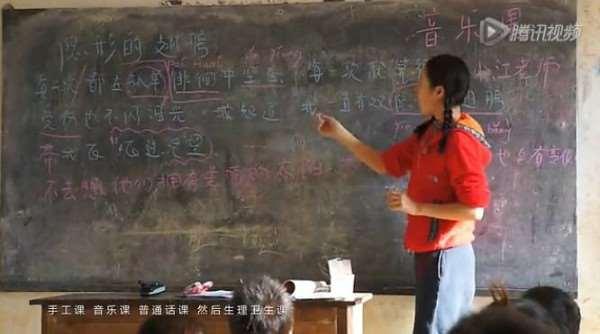 腾讯视频
音乐课
隐形的翅膀
每一次 都在孤单 徘徊中坚强 每一次就算 江老师
受伤也不闪泪光 我知道 我一直有双 翅膀
带我飞 飞过绝望 也会有变化
不去想他们拥有美丽的太阳
手工课 音乐课 普通话课 然后生理卫生课